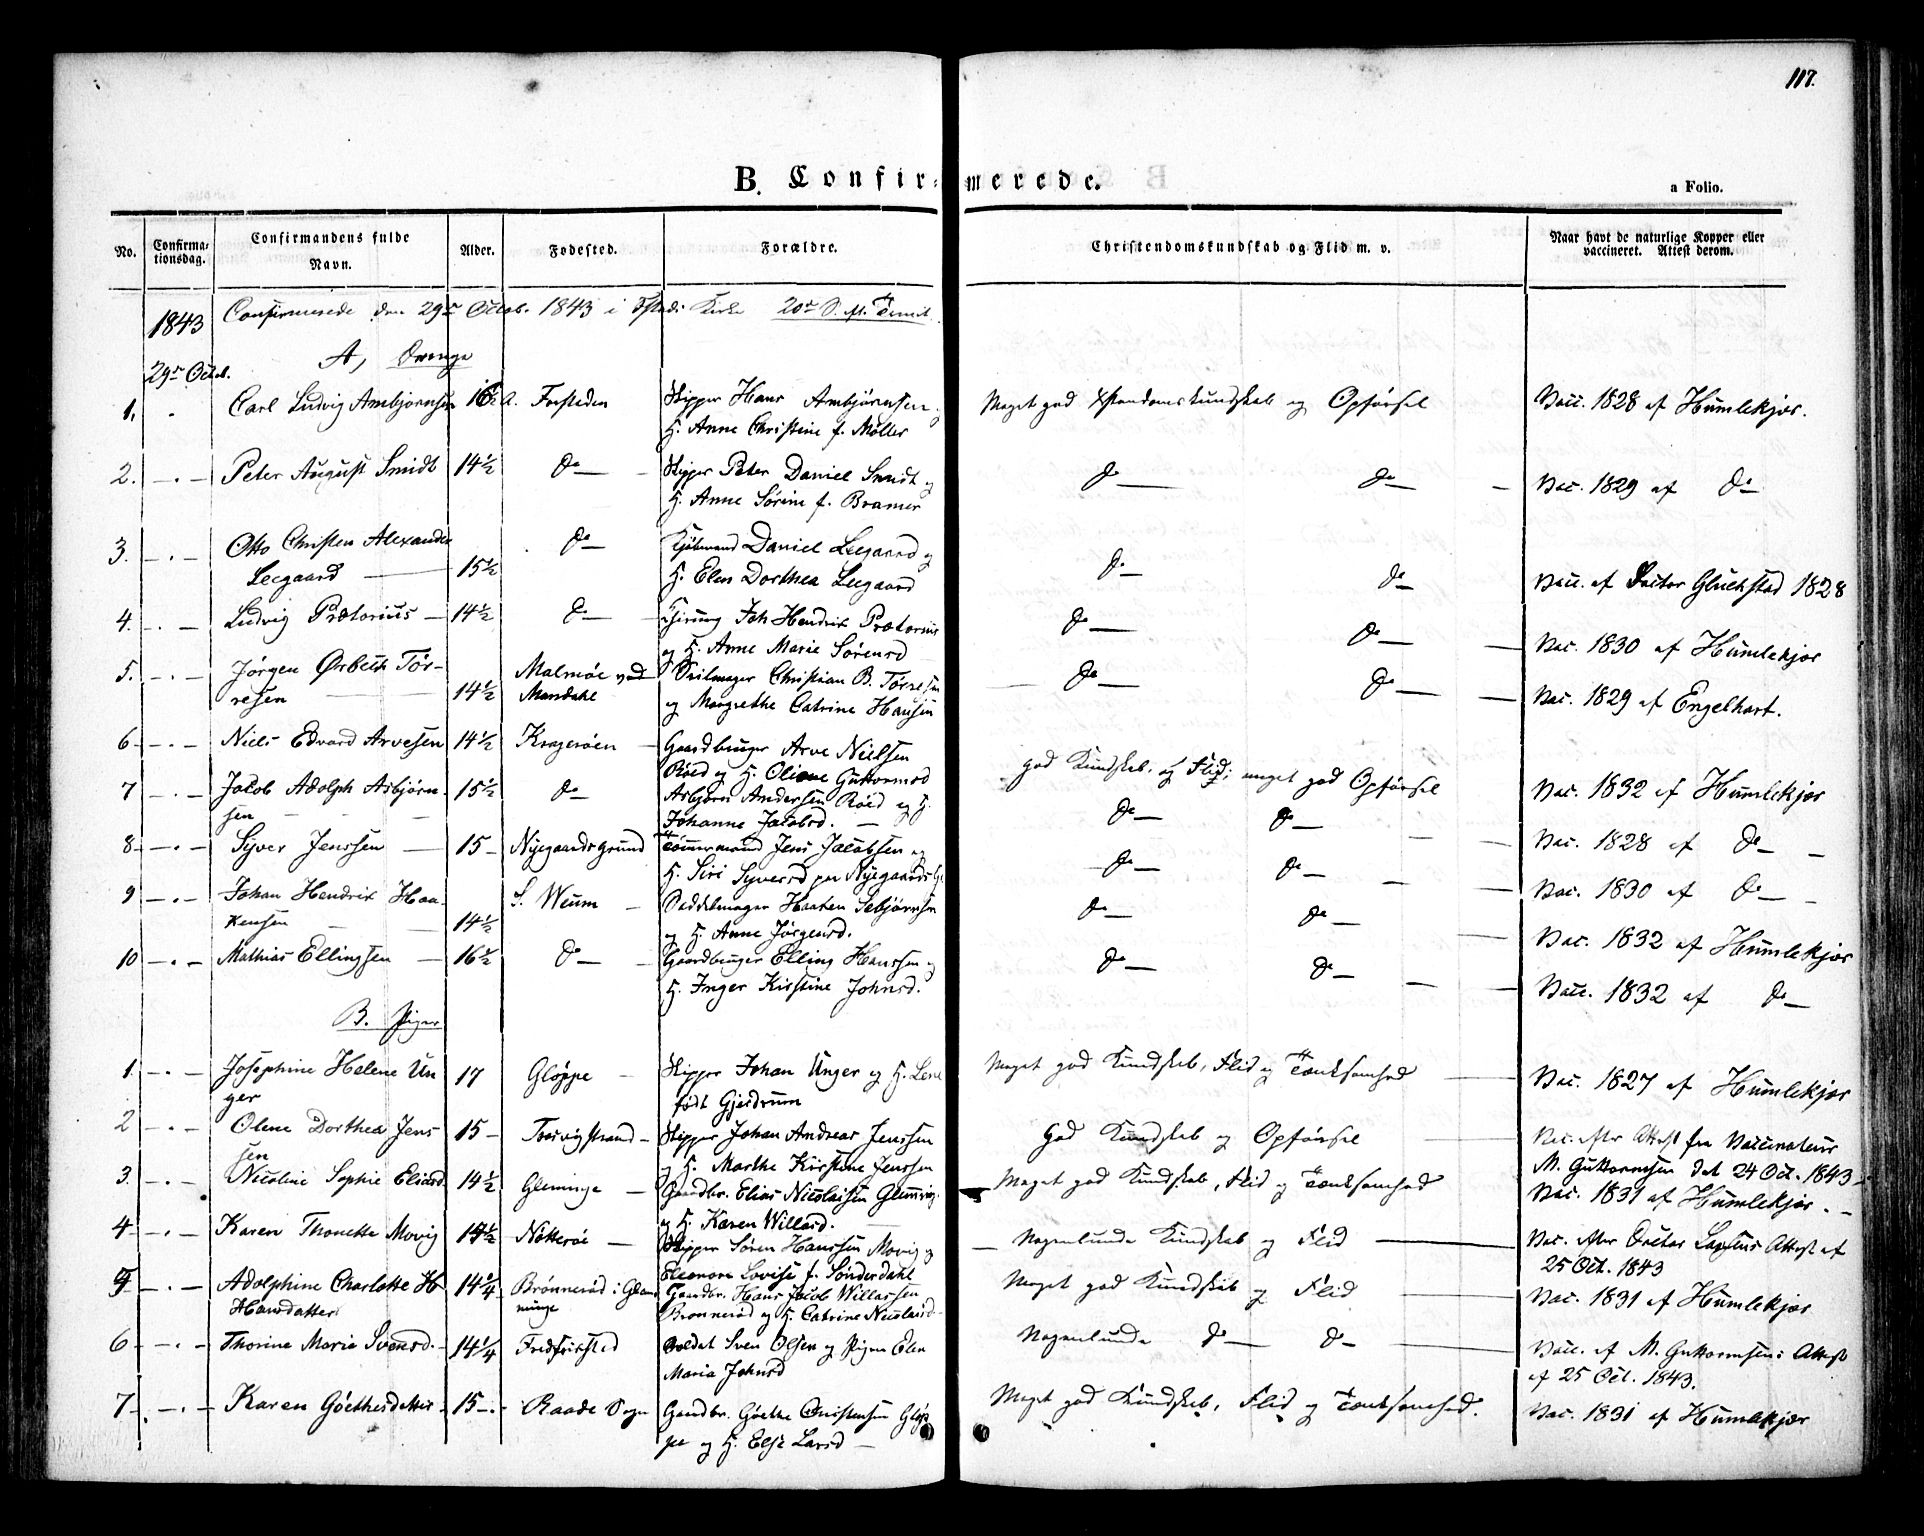 117.
B. Confir=merede.
a Folio.
No. Confirma-tionsdag. Confirmandens fulde Navn. Alder. Fødested. Forældre. Christendomskundskab og Flid m. v. Naar havt de naturlige Kopper eller vaccineret. Attest derom.
1843 Confirmerede den 29de Octob. 1843 i Kirke 20de S. Trinit.
29de Octob. A, Drenge
1. Carl Ludvig Ambjørnsen 16 Forstaden Skipper Hans Ambjørnsen Meget god Xstendomskundskab og Opførsel Vacc. 1828 af Humlekjær.
H. Anne Christine f. Møller
2. Peter August Smidt 14½ do Skipper Peter Daniel Smidt og do do Vac. 1829 af do
H. Anne Sørine f. Bramer
3. Otto Christen Alexander do Kjøbmand Daniel Leegaard og
Leegaard 15½ H. Elen Dorthea Leegaard do do Vacc. af Doctor Gluckstad 1828
4. Ludvig Prætorius 14½ do Chirurg Joh Hendrik Prætorius do do Vac. 1830 af Humlekjær
og H. Anne Marie Sørensd
5. Jørgen Ørbech Tør- Malmøe ved Seilmager Christian B. Tørresen do do Vac. 1829 af Engelhart.
resen 14½ Mandahl og Margrethe Catrine Hansen
6 Niels Edvard Arvesen 14½ Kragerøen Gaardbruger Arve Nielsen god Kundskab, og Flid; meget god Opførsel Vac. 1832 af Humlekjær
Røed og H. Oliane Guttormsd
7 Jacob Adolph Asbjørn- 15½ do Asbjørn Andersen Røed og H. do do Vac. 1828 af do
sen Johanne Jacobsd.
8 Syver Jenssen 15 Nygaardsgrund Tømmermand Jens Jacobsen og do do Vac. 1830 af do
H. Siri Syversd paa Nygaards
9 Johan Hendrik Haa- S. Weum Sadelmager Haaken Sebjørnsen do do Vac. 1832 af Humlekjær
kensen 14½ og H. Anne Jørgensd.
10 Mathias Ellingsen 16½ do Gaardbruger Elling Hanssen og do do Vacc. 1832 af do
H. Inger Kirstine Johnsd.
B. Piger
1. Josephine Helene Un 17 Gløppe Skipper Johan Unger og H. Lene Meget god Kundskab, Flid og Tænksomhed Vac. 1827 af Humlekjær
ger født Gjerdrum
2 Olene Dorthea Jens 15 Torsvigstrand Skipper Johan Andreas Jenssen God Kundskab og Opførsel Vac. efter Attest fra Vaccinateur
sen og H. Marthe Kirstine Jenssen M. Guttormsen det 24 Oct. 1843
3. Nicoline Sophie Eliasd 14½ Glemminge Gaardbr. Elias Nicolaisen Meget god Kundskab, Flid og Tænksomhed Vac. 1831 af Humlekjær.
og H. Karen Willasd.
4 Karen Thonette Movig Nøtterøe Skipper Søren Hanssen Movig og Nogenlunde Kundskab og Flid Vac. efter Doctor Attest af
Eleonore Lovise f. Sønderdahl 25 Oct. 1843
5 Adolphine Charlotte H 14¼ Brønnerød i Glem Gaardbr. Hans Jacob Willassen Meget god Kundskab og Flid Vac. 1831 af Humlekjær
Hansdatter minge Brønnerød og H. Catrine Nicolaisd
6 Thorine Marie Svensd. 14¼ Fredrikstad Soldat Sven Olsen og Pigen Elen Nogenlunde do do Vacc. af M. Guttormsen: Attest
Maria Johnsd af 25 Oct. 1843.
7 Karen Gøethesdatter 15 Raade Sogn Gaardbr. Gøethe Christensen Gløp Meget god Kundskab, Flid og Tænksomhed. Vac. 1831 af Humlekjær
pe og H. Else Larsd